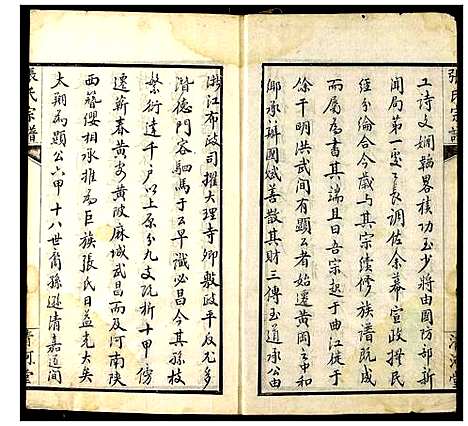 張氏宗譜
工詩文嫻韜畧積功至少將由國防部新
聞局第一處處長調佐余幕宣政撫民
經分綸合今歲与其宗續修族譜既成
而屬為書其端且曰吾宗起于曲江徙于
餘干明洪武間有顯公者始遷黃岡之中和
鄉承科國斌善散其財三傳玉道承公由
清河堂
浙江布政司擢大理寺卿敷政平反尤多
潛德門容駟馬于公早識必昌今其孫枝
繁衍達千戶以上原分九支既析十甲傍
遷蘄春黃安黃陂麻城武昌而及河南陝
西簪纓相承推為巨族張氏日益光大矣
太翔為顯公六甲十八世裔孫遜清嘉道間
張氏宗譜
清河堂